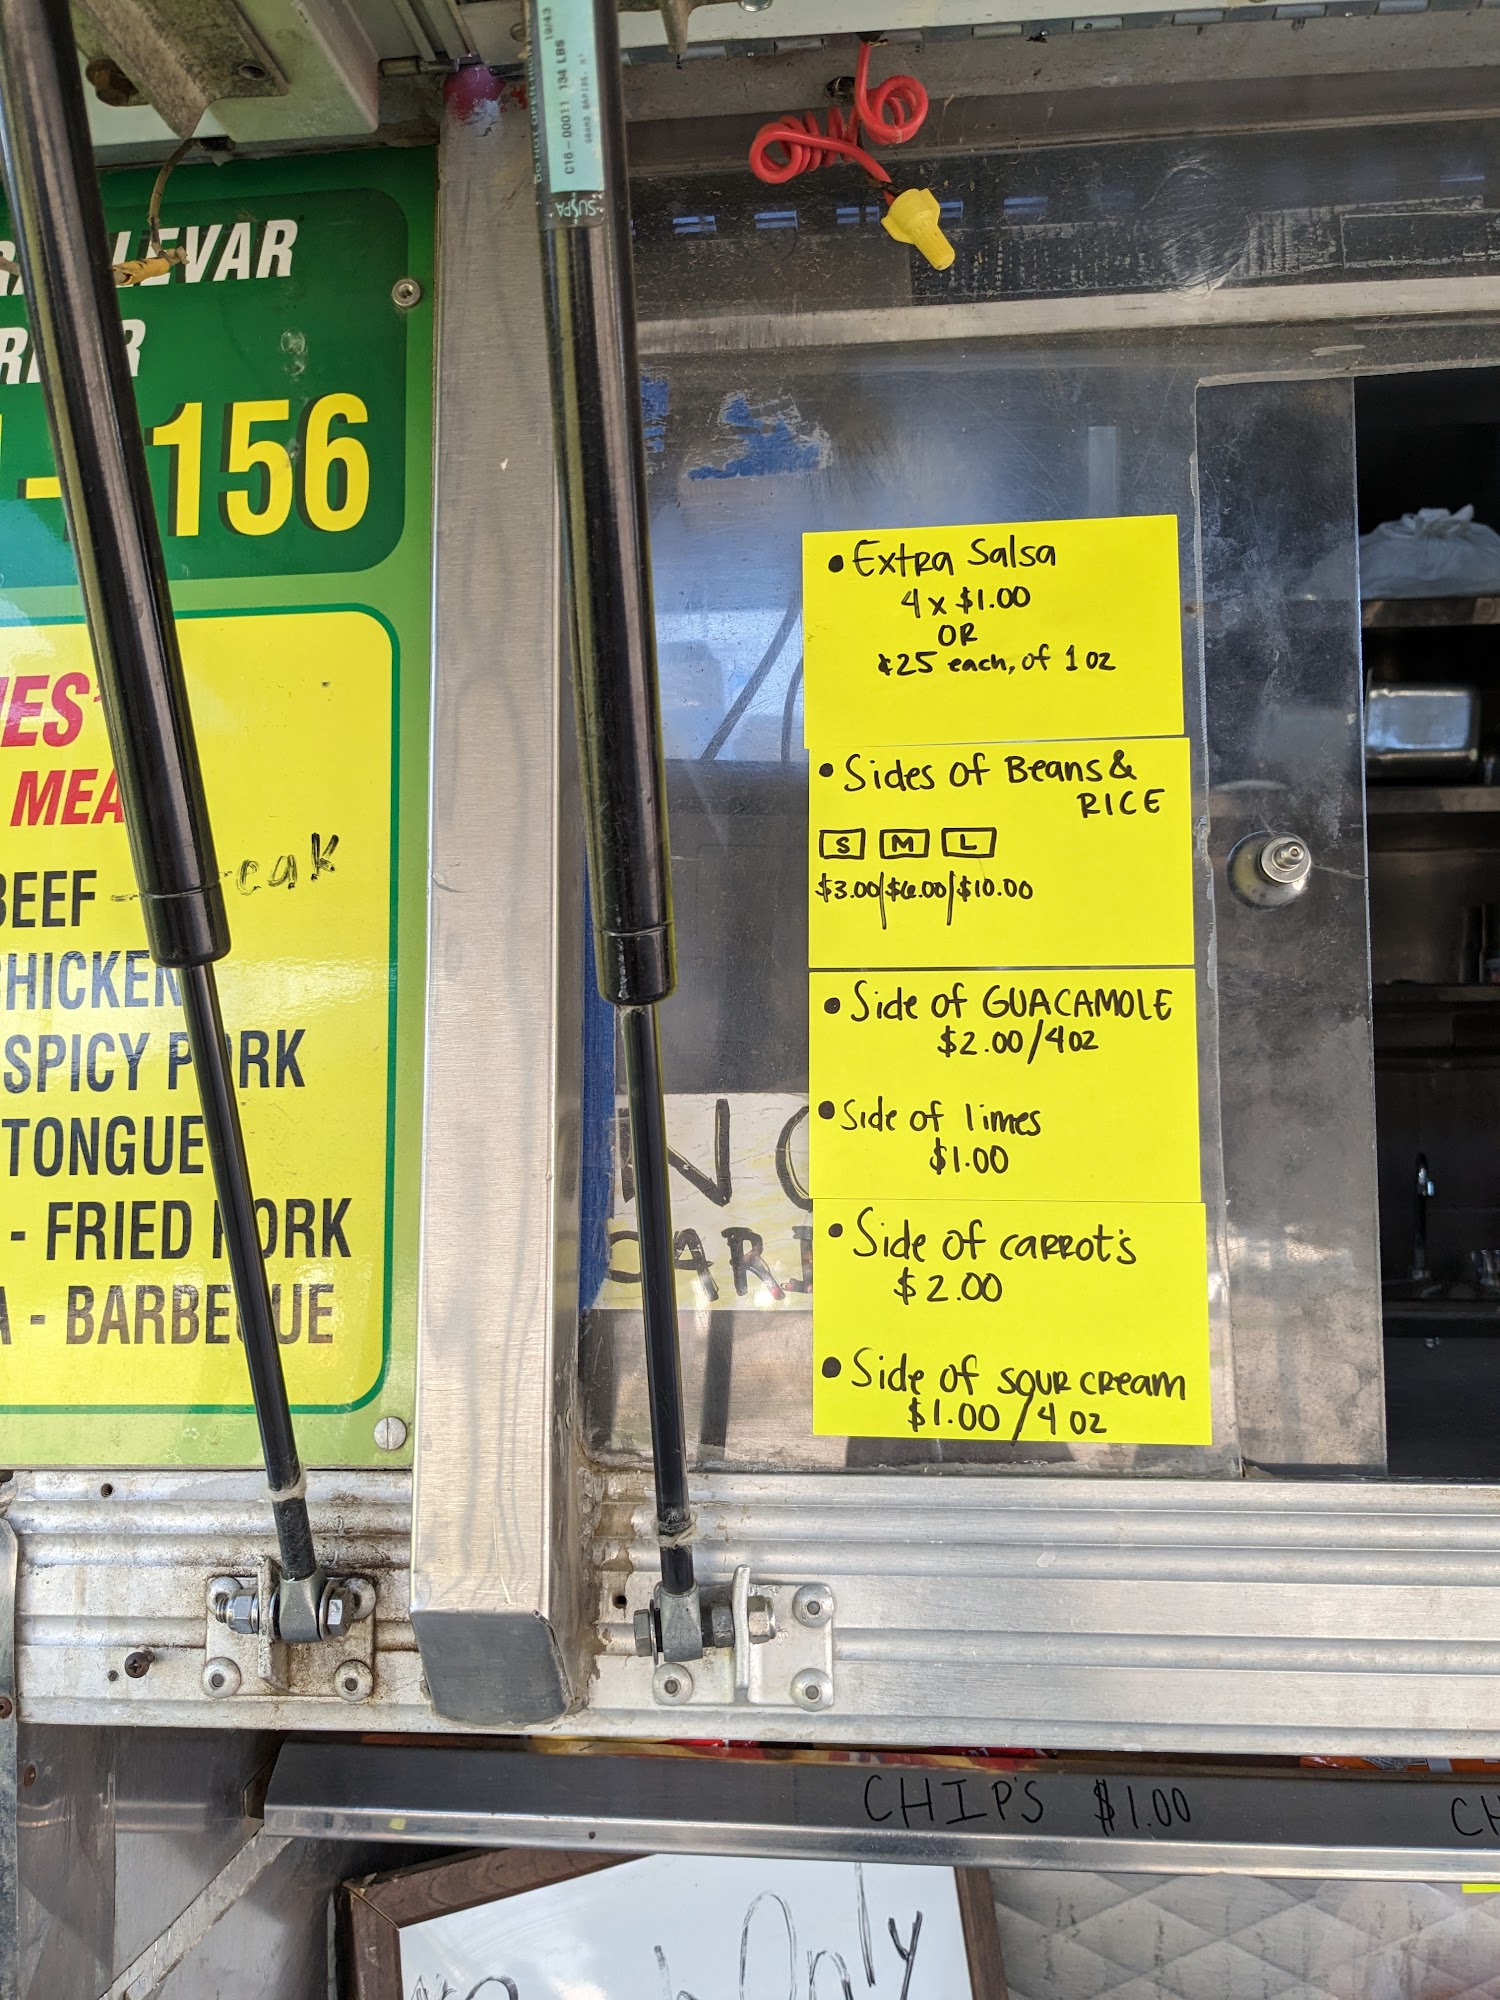 LEVAR
156
BEEF
CHICKEN
SPICY PORK
TONGUE
- FRIED PORK
A - BARBECUE
C16-00011 134 LBS
GRAND RAPIDS, MI
SUSPA
• Extra Salsa
4 x $1.00
OR
$25 each, of 1 oz
• Sides of Beans &
RICE
S M L
$3.00/$6.00/$10.00
• Side of GUACAMOLE
$2.00/4oz
• Side of limes
$1.00
• Side of carrot's
$2.00
• Side of sour cream
$1.00/4 oz
NO
CHIP'S $1.00
CH
Only